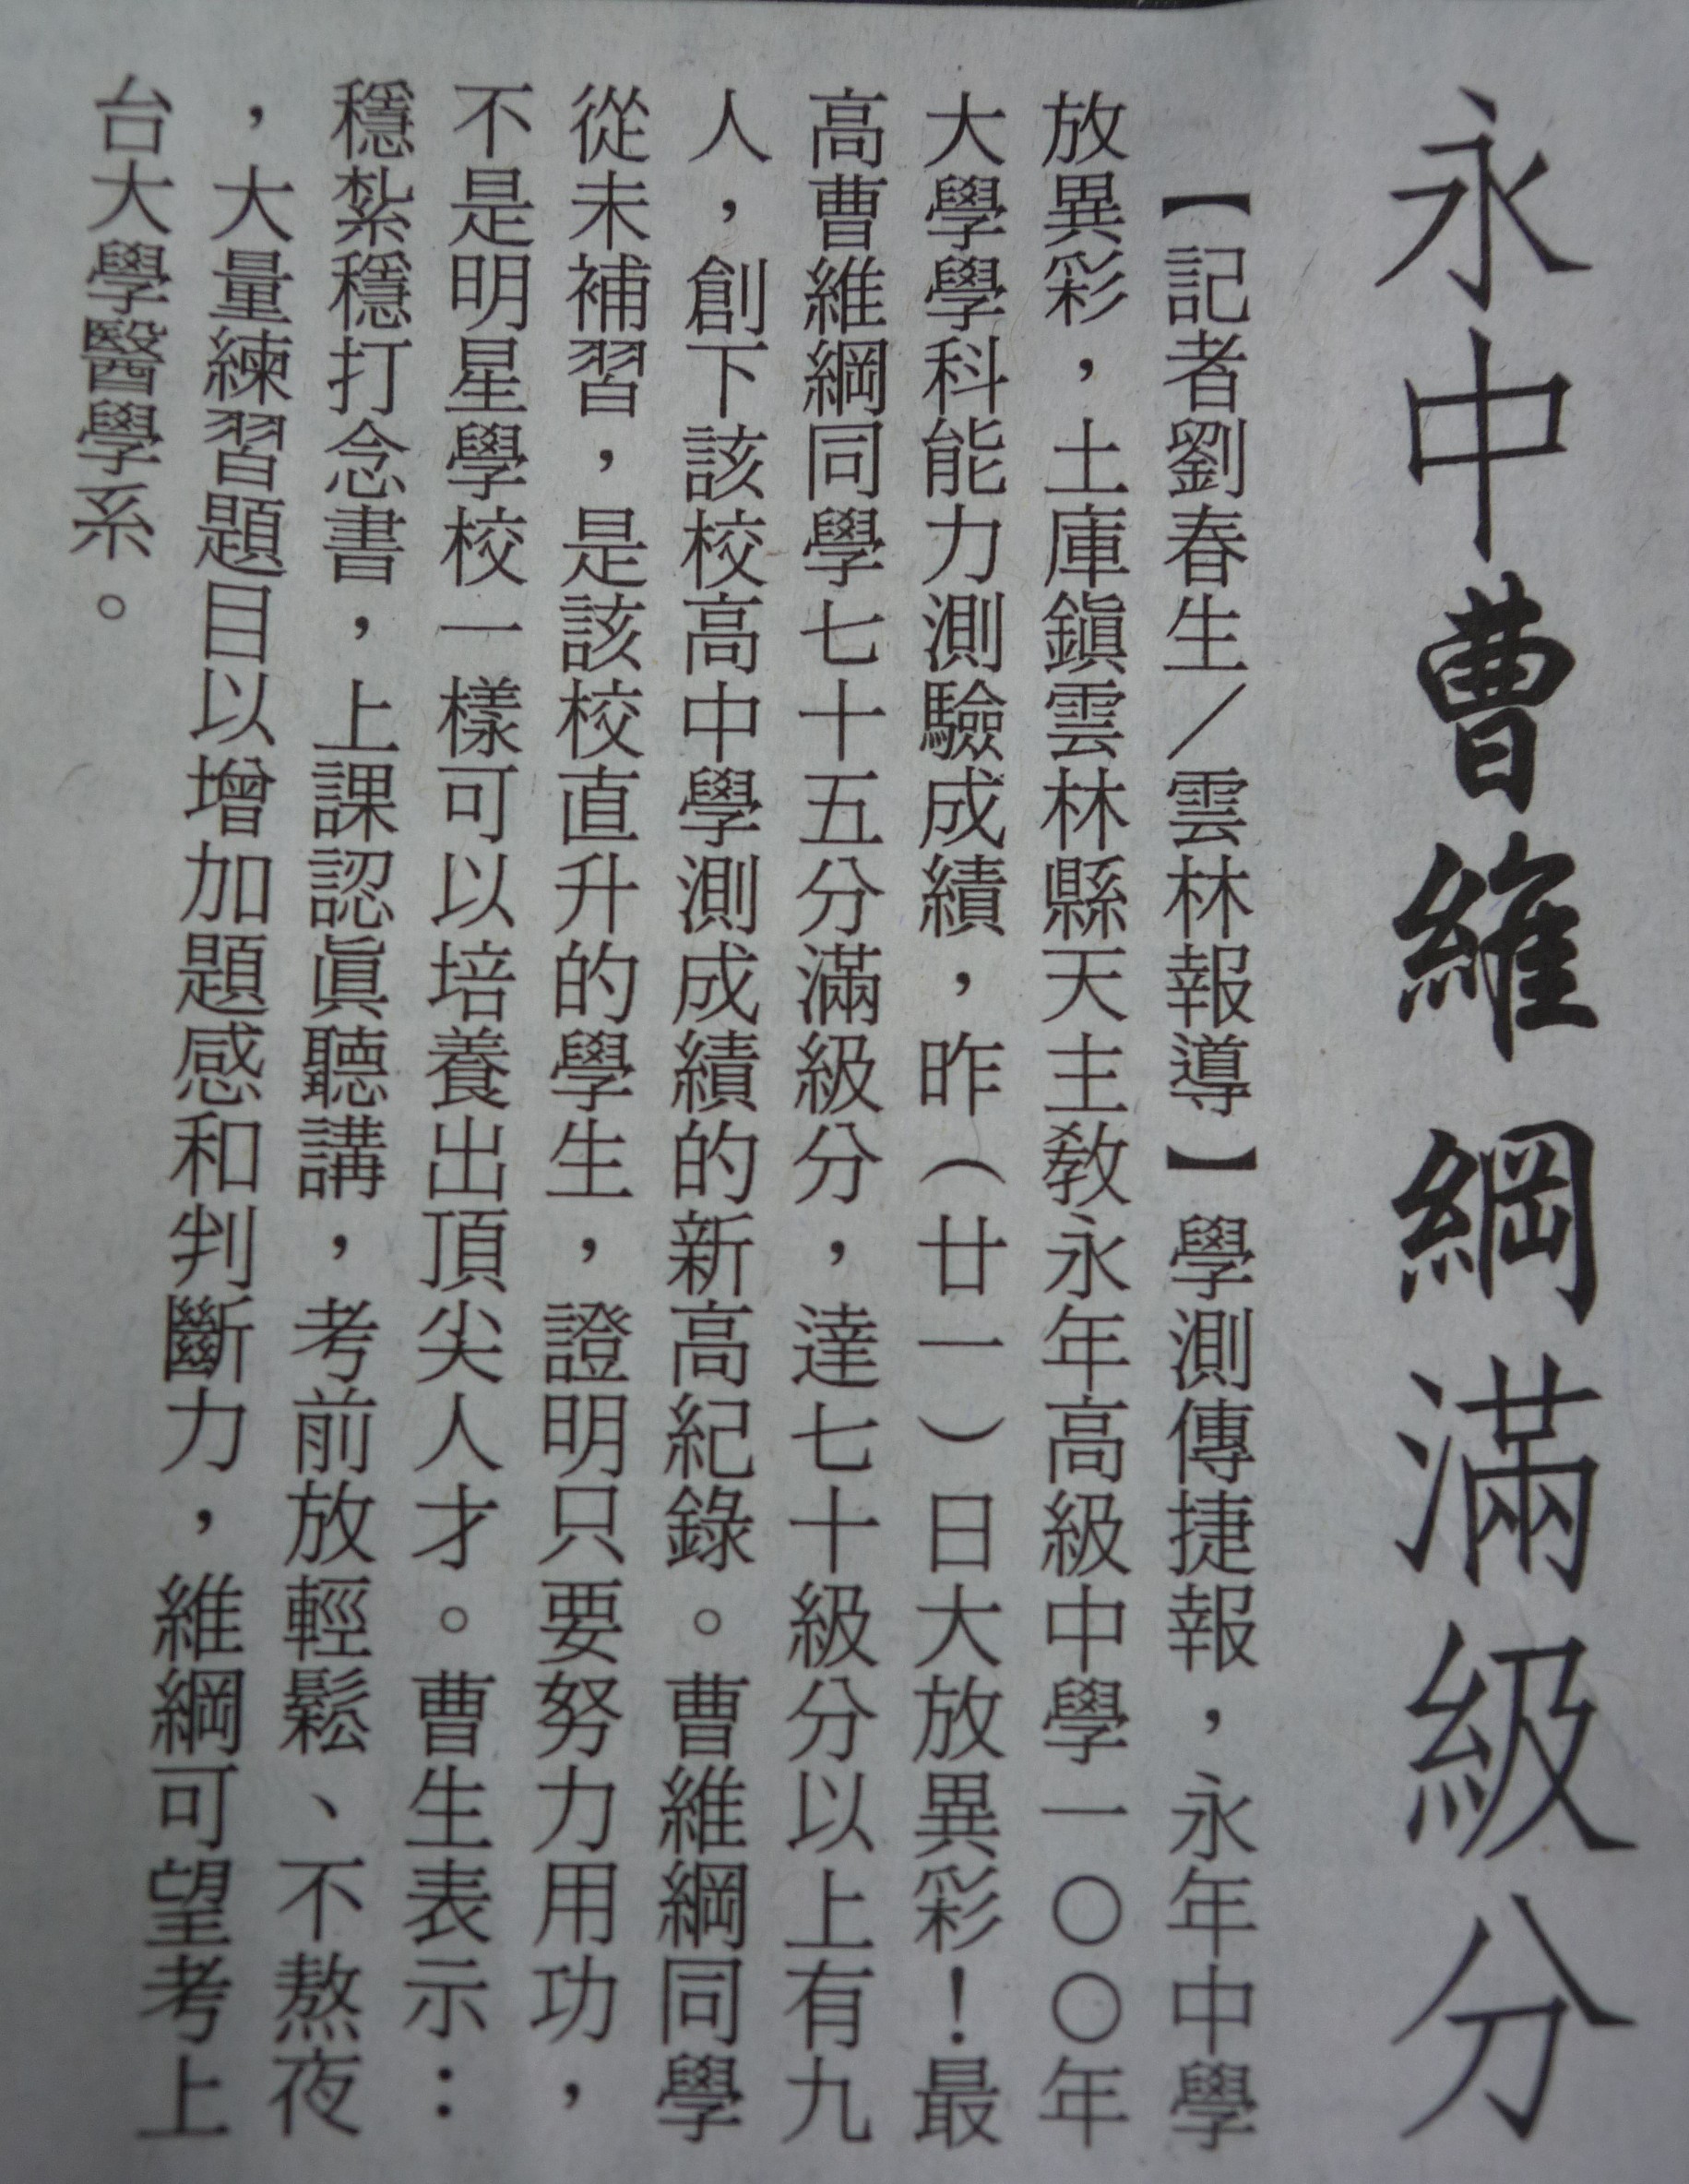 永中曹維綱滿級分
【記者劉春生／雲林報導】學測傳捷報，永年中學
放異彩，土庫鎮雲林縣天主教永年高級中學一〇〇年
大學學科能力測驗成績，昨（廿一）日大放異彩！最
高曹維綱同學七十五分滿級分，達七十級分以上有九
人，創下該校高中學測成績的新高紀錄。曹維綱同學
從未補習，是該校直升的學生，證明只要努力用功，
不是明星學校一樣可以培養出頂尖人才。曹生表示：
穩紮穩打念書，上課認眞聽講，考前放輕鬆、不熬夜
，大量練習題目以增加題感和判斷力，維綱可望考上
台大學醫學系。